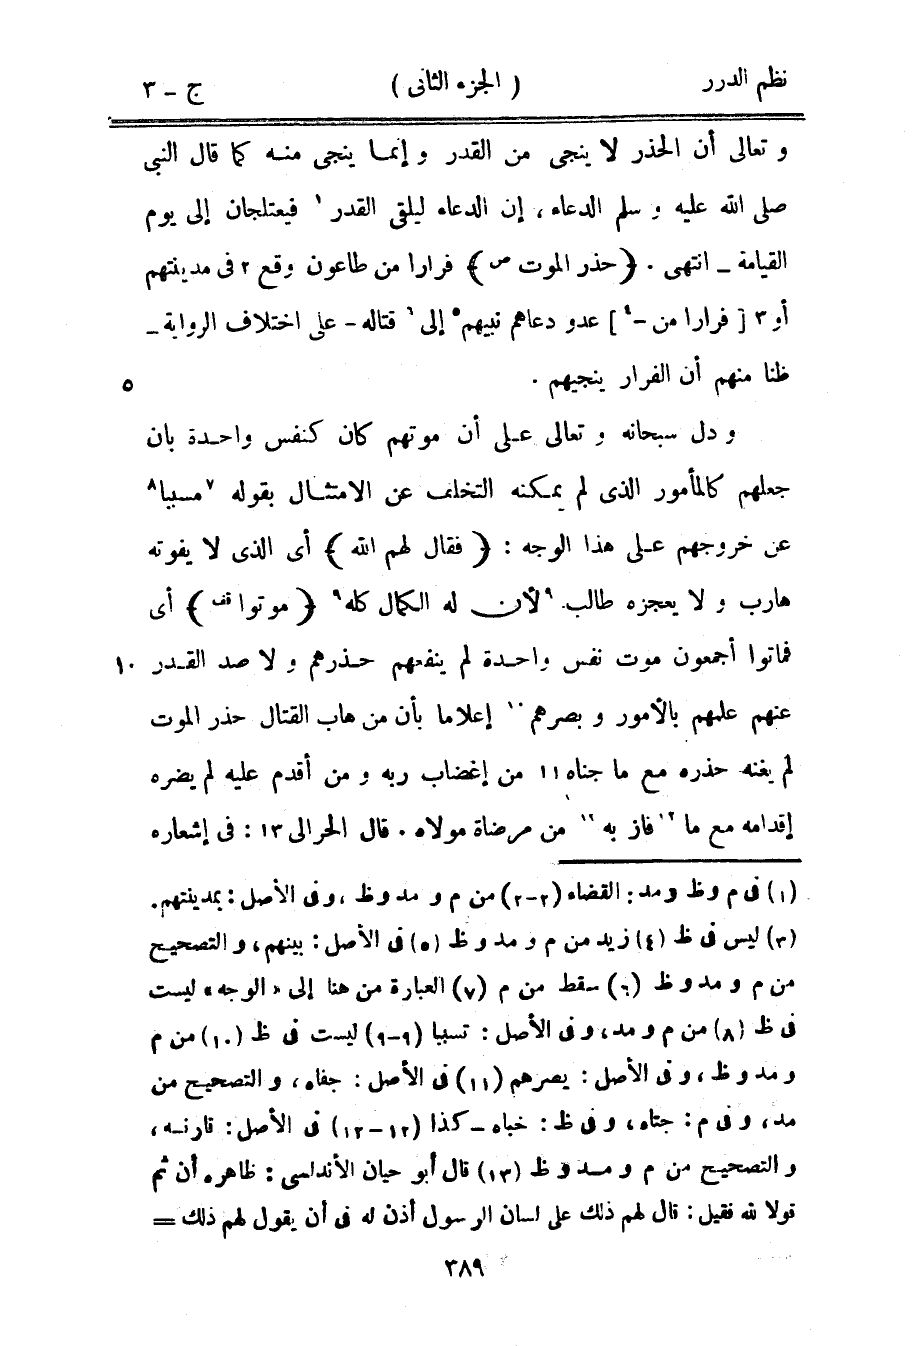 نظم الدرر ( الجزء الثانى ) ج - ٣
و تعالى أن الحذر لا ينجى من القدر و إنما ينجى منه كما قال النبى
صلى الله عليه و سلم الدعاء، إن الدعاء ليلقى القدر ١ فيعتلجان إلى يوم
القيامة - انتهى . ﴿ حذر الموت ص ﴾ فرارا من طاعون وقع ٢ فى مدينتهم
أو ٣ [ فرارا من -٤ ] عدو دعاهم نبيهم ٥ إلى ٦ قتاله - على اختلاف الرواية -
ظنا منهم أن الفرار ينجيهم . ٥
و دل سبحانه و تعالى على أن موتهم كان كنفس واحدة بان
جعلهم كالمأمور الذى لم يمكنه التخلف عن الامتثال بقوله ٧ مسببا ٨
عن خروجهم على هذا الوجه : ﴿ فقال لهم الله ﴾ أى الذى لا يفوته
هارب و لا يعجزه طالب ٩ لأن له الكمال كله ٩ ﴿ موتوا قف ﴾ أى
فماتوا أجمعون موت نفس واحدة لم ينفعهم حذرهم و لا صد القدر ١٠
عنهم علمهم بالأمور و بصرهم ١٠ إعلاما بأن من هاب القتال حذر الموت
لم يغنه حذره مع ما جناه ١١ من إغضاب ربه و من أقدم عليه لم يضره
إقدامه مع ما ١٢ فاز به ١٢ من مرضاة مولاه . قال الحرالى ١٣ : فى إشعاره
(١) فى م و ظ و مد : القضاء (٢-٢) من م و مد و ظ ، و فى الأصل : بمدينتهم .
(٣) ليس فى ظ (٤) زيد من م و مد و ظ (٥) فى الأصل : بينهم، و التصحيح
من م و مد و ظ (٦) سقط من م (٧) العبارة من هنا إلى « الوجه » ليست
فى ظ (٨) من م و مد، و فى الأصل : تسببا (٩-٩) ليست فى ظ (١٠) من م
و مد و ظ ، و فى الأصل : يصرهم (١١) فى الأصل : جفاه ، و التصحيح من
مد، و فى م : جتاه، و فى ظ : خباه - كذا (١٢-١٢) فى الأصل : قارنه،
و التصحيح من م و مد و ظ (١٣) قال أبو حيان الأندلسى : ظاهره أن ثم
قولا لله فقيل : قال لهم ذلك على لسان الرسول أذن له فى أن يقول لهم ذلك =
٣٨٩